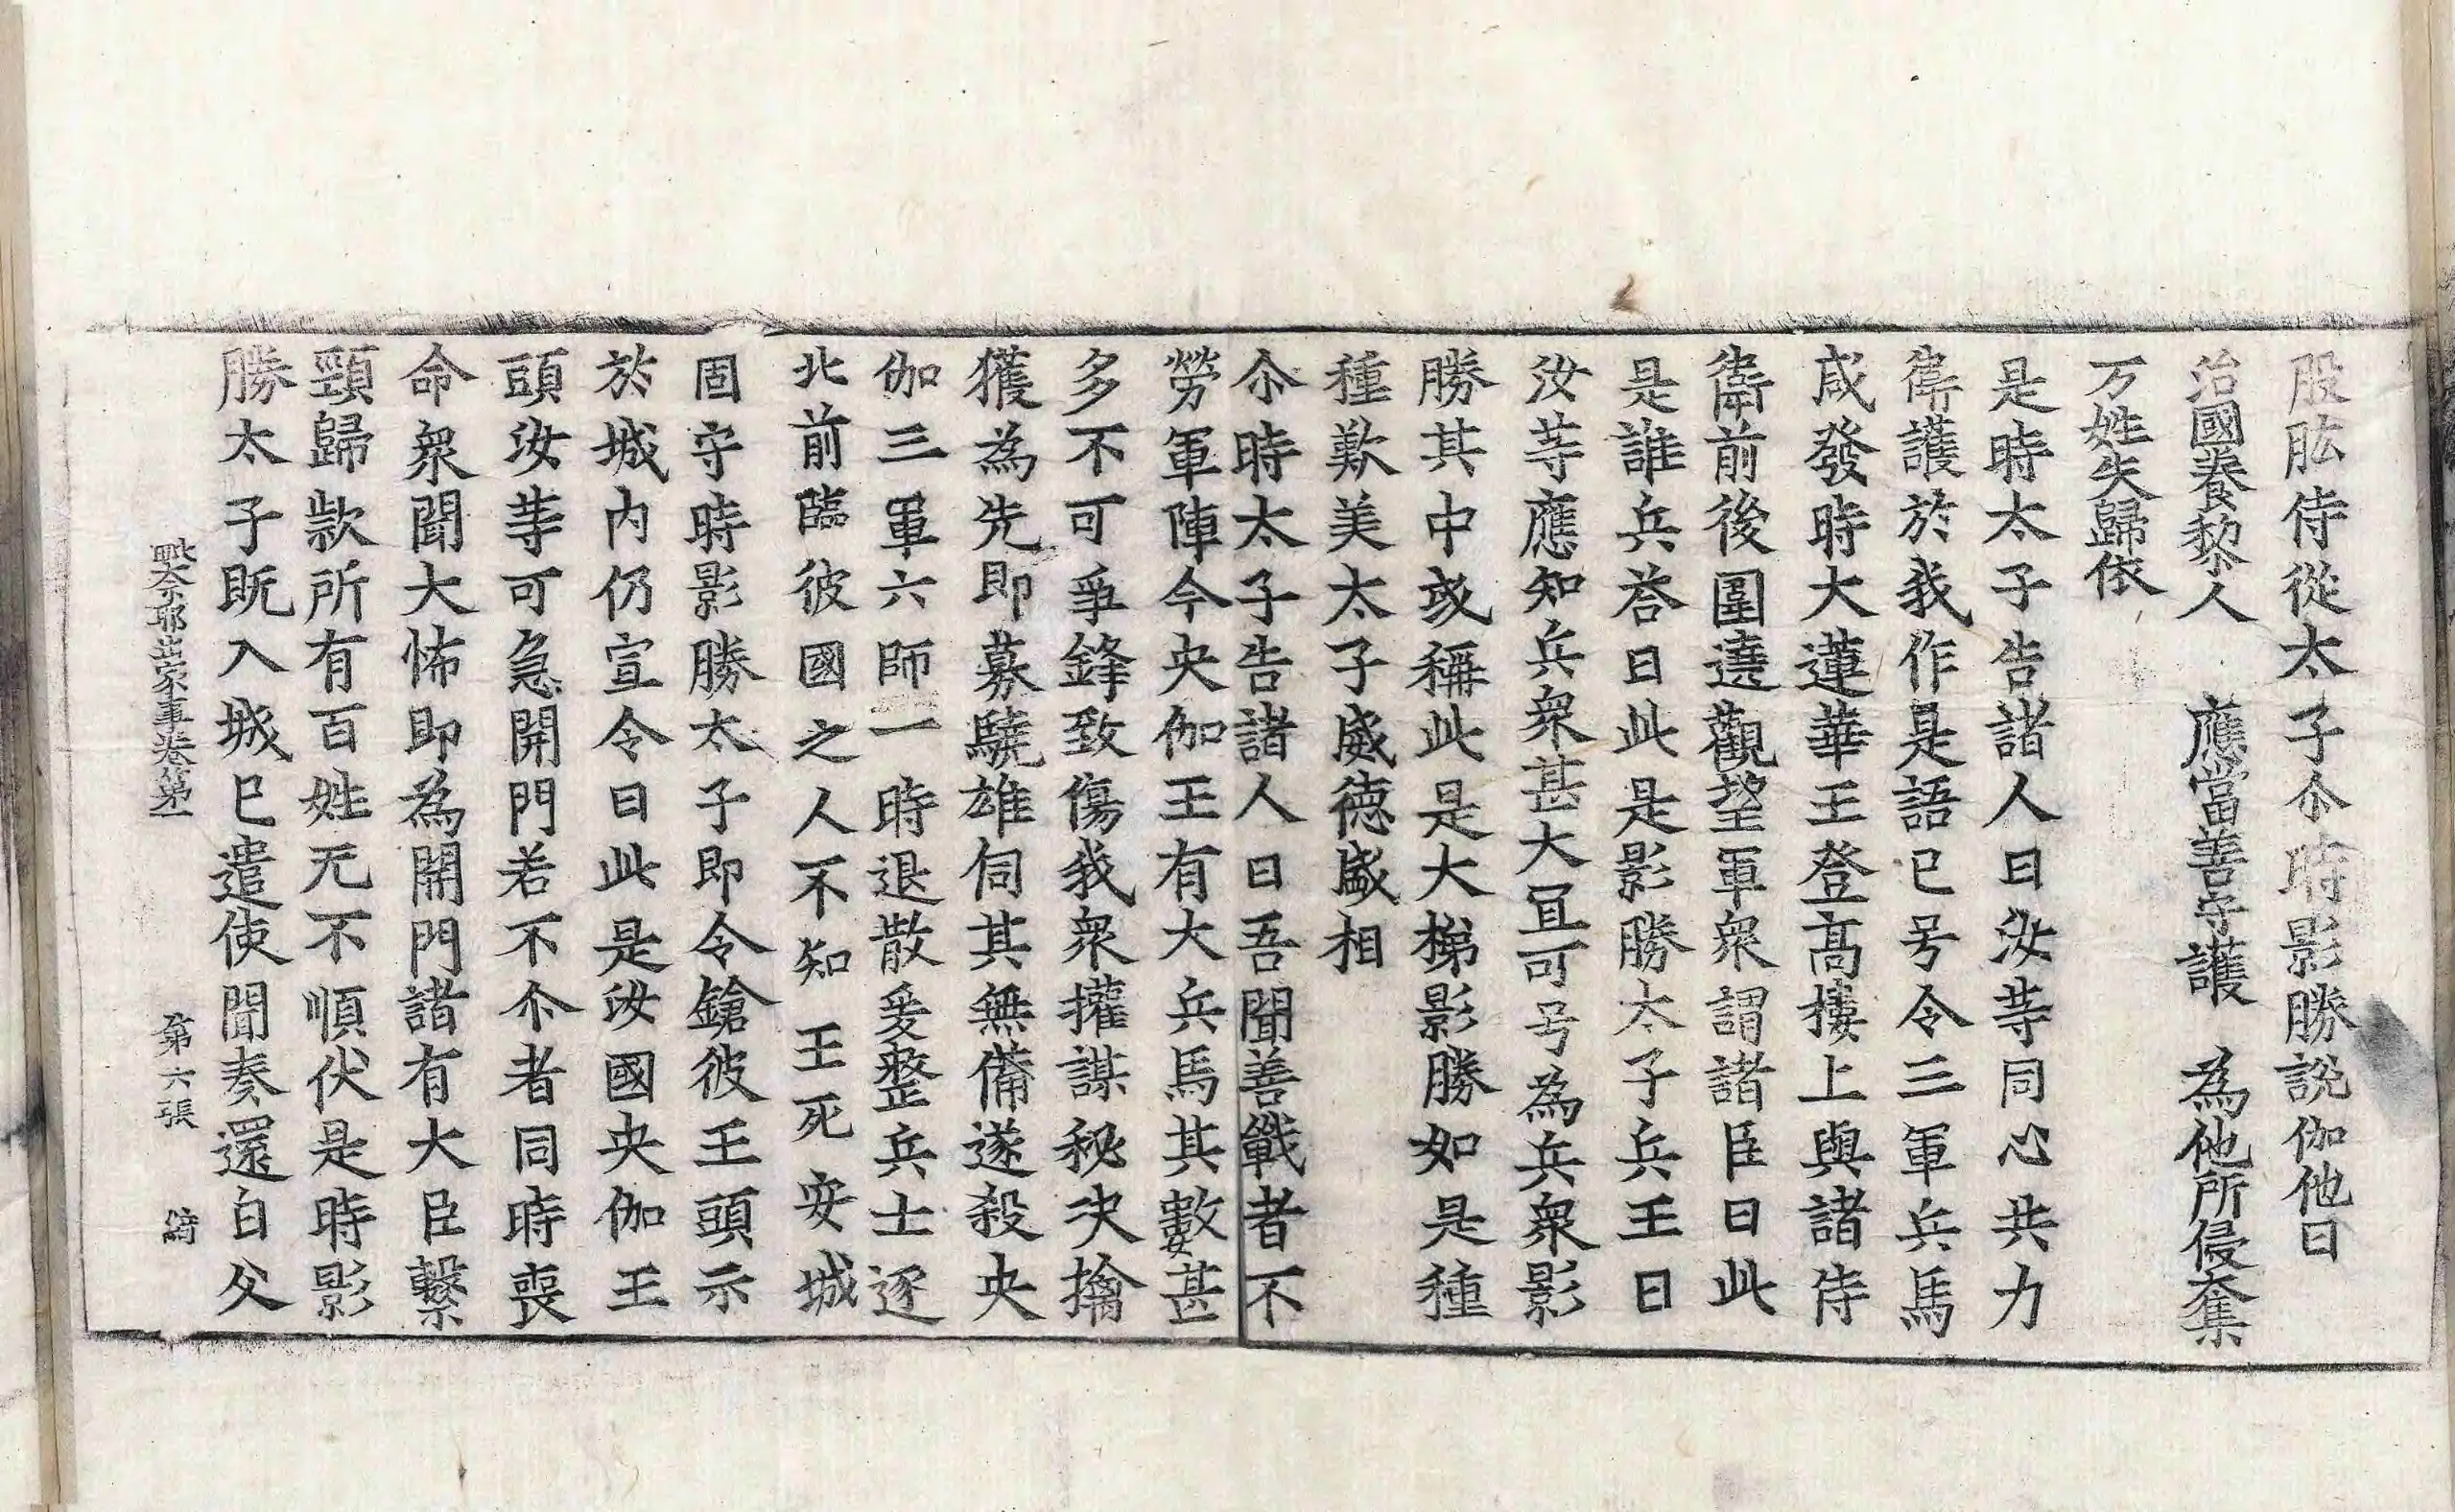 股肱侍從太子尒時影勝說伽他曰
治國養黎人　應當善守護　為他所侵奪
万姓失歸依
是時太子告諸人曰汝䓁同心共力
衛護於我作是語已号令三軍兵馬
咸發時大蓮華王登髙樓上與諸侍
衛前後圍遶觀望軍衆謂諸臣曰此
是誰兵荅曰此是影勝太子兵王曰
汝䓁應知兵衆甚大冝可号為兵衆影
勝其中或稱此是大梯影勝如是種
種歎美太子威德盛相
尒時太子告諸人曰吾聞善戰者不
勞軍陣今央伽王有大兵馬其數甚
多不可爭鋒致傷我衆權謀秘决擒
獲為先即募驍雄伺其無備遂殺央
伽三軍六師一時退散爰整兵士逐
北前臨彼國之人不知王死安城
固守時影勝太子即令鎗彼王頭示
於城内仍宣令曰此是汝國央伽王
頭汝䓁可急開門若不尒者同時喪
命衆聞大怖即為開門諸有大臣繫
頸歸款所有百姓无不順伏是時影
勝太子既入城已遣使聞奏還白父
毗奈耶出家事卷第一　第六張